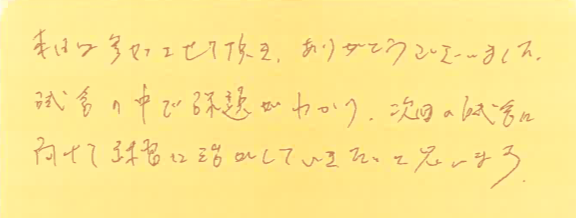 本日は参加させて頂き、ありがとうございました。
試合の中で課題がわかり、次回の試合に
向けて練習に活かしていきたいと思います。